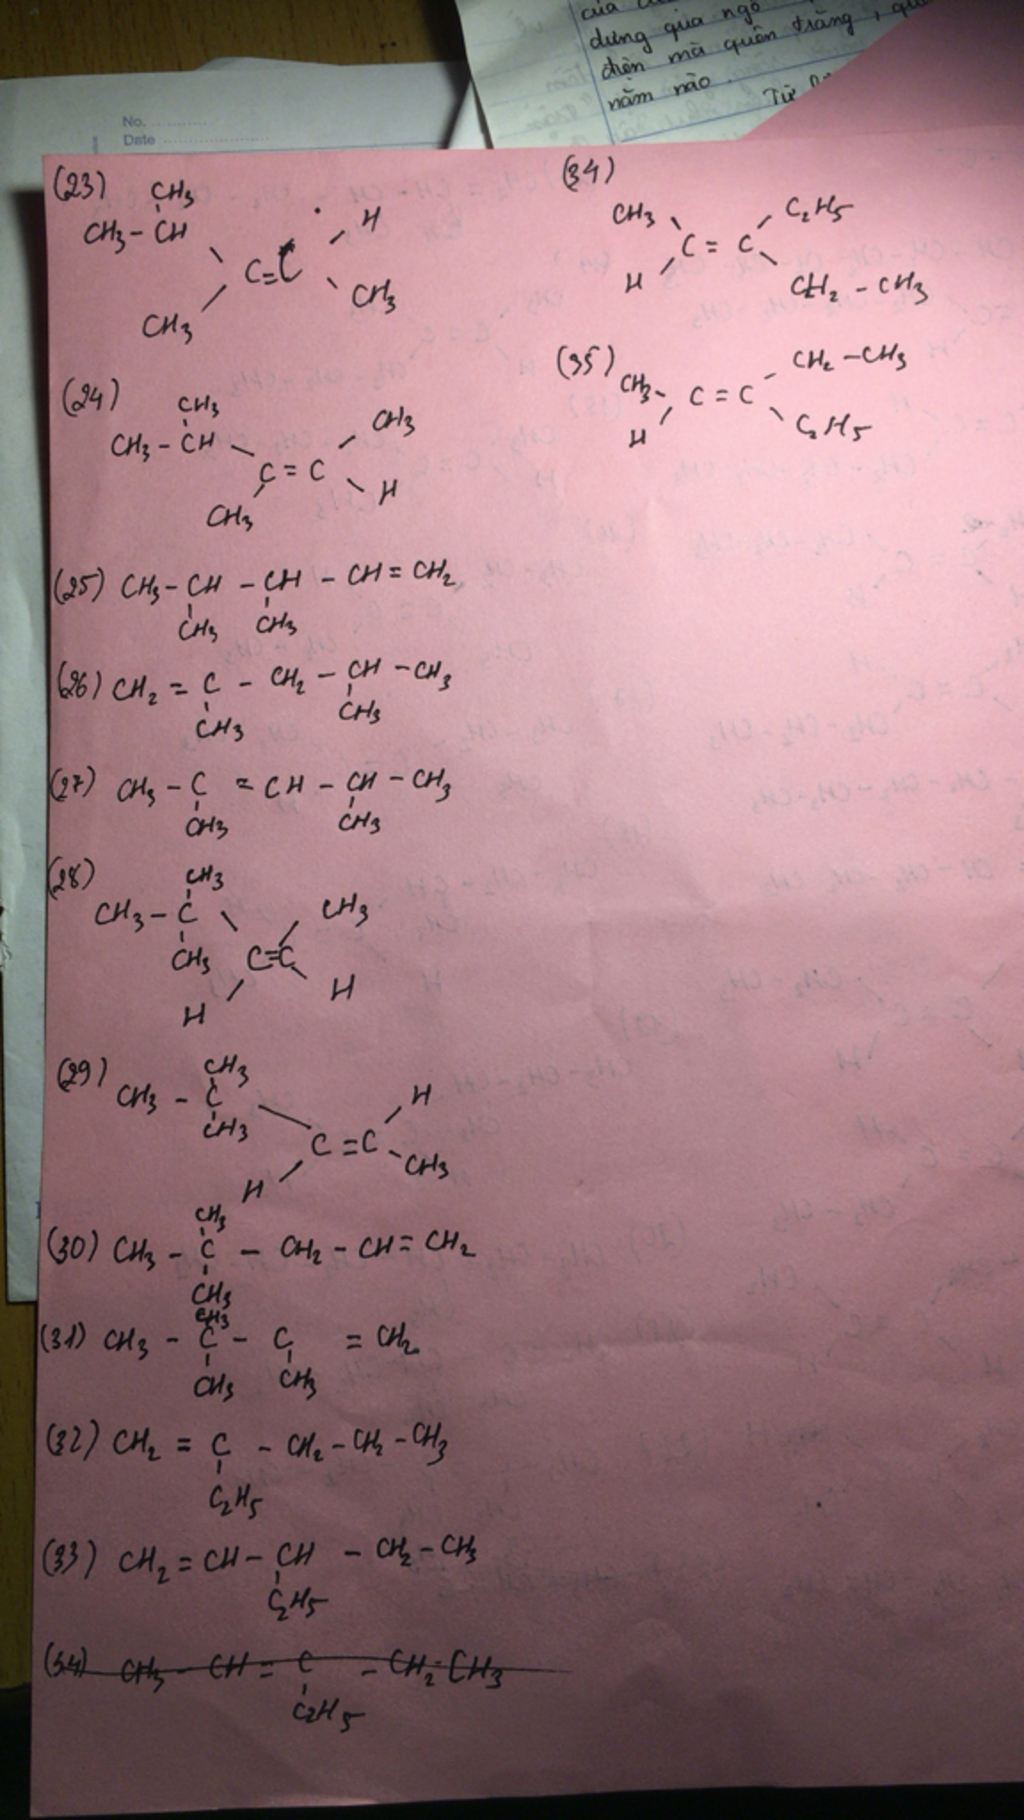 của
dưng qua ngõ
điện mà quên trăng,
năm nào.
Từ
No.
Date
(23) CH3
CH3 - CH H
C = C
CH3 CH3
(24) CH3
CH3 - CH CH3
C = C
CH3 H
(25) CH3 - CH - CH - CH = CH2
CH3 CH3
(26) CH2 = C - CH2 - CH - CH3
CH3 CH3
(27) CH3 - C = CH - CH - CH3
CH3 CH3
(28) CH3
CH3 - C CH3
CH3 C = C
H H
(29) CH3
CH3 - C H
CH3 C = C
H CH3
CH3
(30) CH3 - C - CH2 - CH = CH2
CH3
CH3
(31) CH3 - C - C = CH2
CH3 CH3
(32) CH2 = C - CH2 - CH2 - CH3
C2H5
(33) CH2 = CH - CH - CH2 - CH3
C2H5
(34) CH3 - CH = C - CH2 - CH3
C2H5
(34)
CH3 C2H5
C = C
H CH2 - CH3
(35) CH2 - CH3
CH3 - C = C
H C2H5